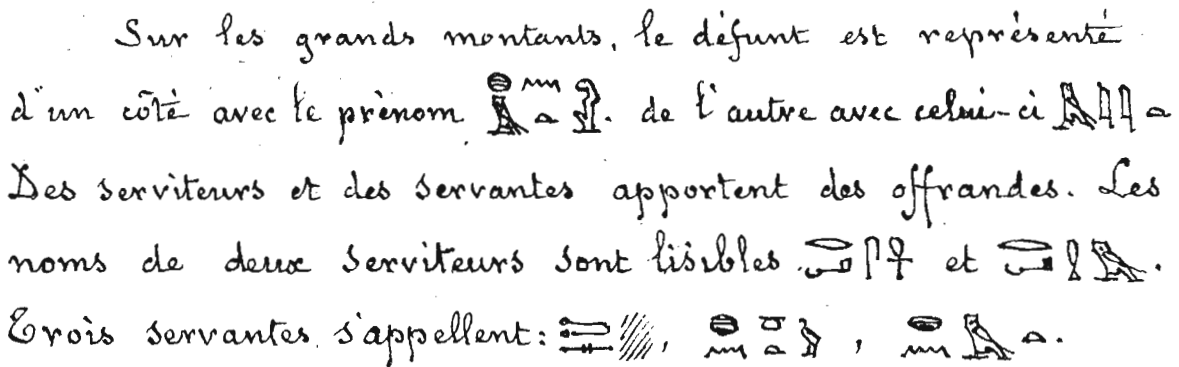 Sur les grands montants, le défunt est représenté
d'un côté avec le prénom . de l'autre avec celui-ci
Des serviteurs et des servantes apportent des offrandes. Les
noms de deux serviteurs sont lisibles et .
Trois servantes s'appellent : , , .